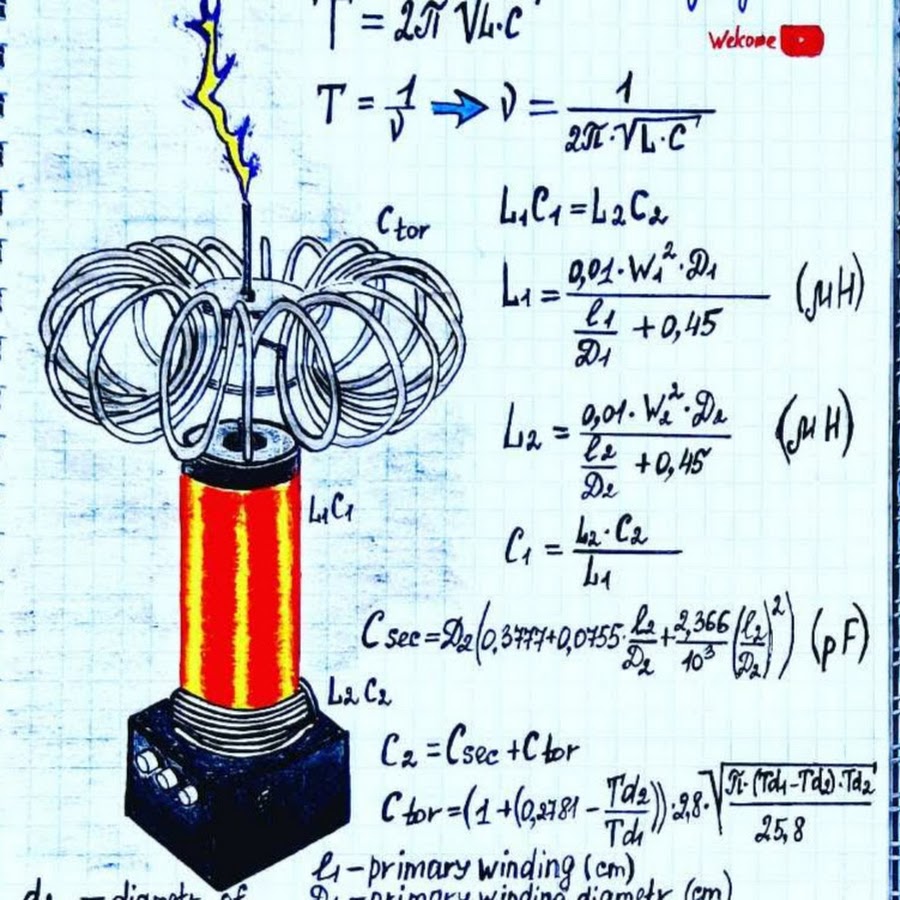 T = 2π √L·C
Welcome
T = 1/ν → ν = 1/(2π·√L·C)
C tor
L₁C₁ = L₂C₂
L₁ = (0,01·W₁²·D₁)/(l₁/D₁ + 0,45) (μH)
L₂ = (0,01·W₂²·D₂)/(l₂/D₂ + 0,45) (μH)
L₁C₁
C₁ = (L₂·C₂)/L₁
C sec = D₂(0,3777+0,0755·l₂/D₂ + 2,366/10³ (l₂/D₂)²) (pF)
L₂C₂
C₂ = Csec + Ctor
C tor = (1 + (0,2781 − Td₂/Td₁))·2,8·√(π·(Td₁−Td₂)·Td₂/25,8)
l₁ – primary winding (cm)
– diametr of
D₁ – primary winding diametr (cm)